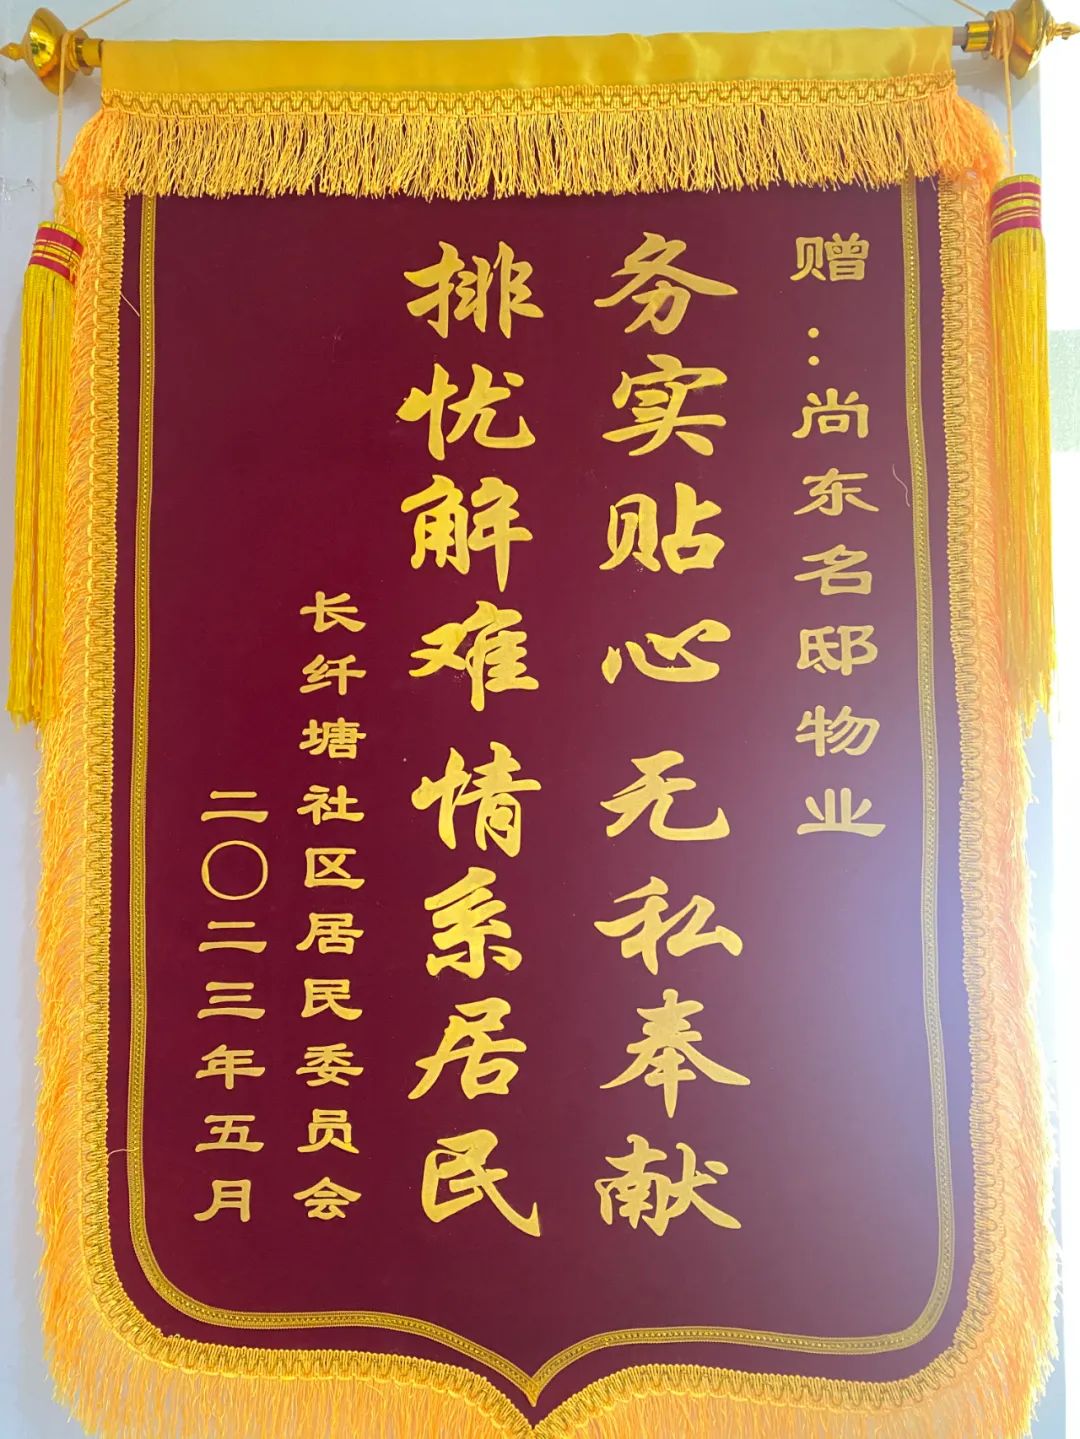 赠：尚东名邸物业
务实贴心无私奉献
排忧解难情系居民
长纤塘社区居民委员会
二〇二三年五月